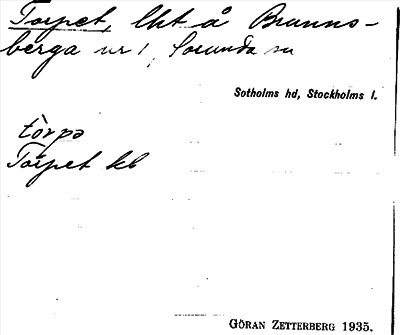 Torpet, lht å Brunns-
berga nr 1, Sorunda sn
Sotholms hd, Stockholms l.
tòrpə
Torpet kb
GÖRAN ZETTERBERG 1935.